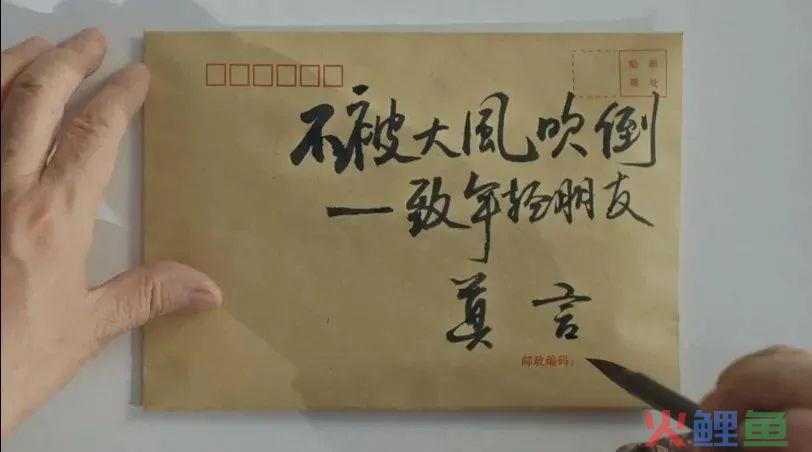 贴 邮
票 处
不被大風吹倒
—致年轻朋友
莫言
邮政编码：
火鲤鱼